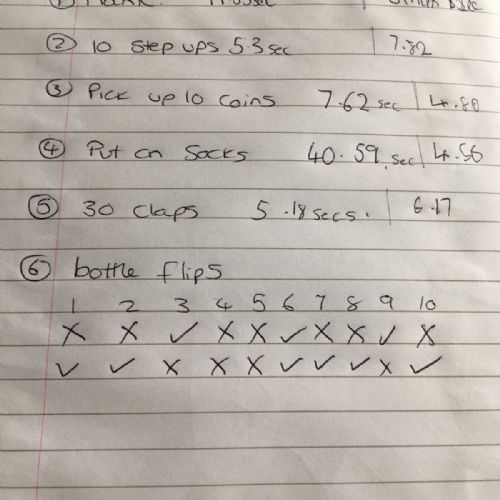 ② 10 step ups 5.3 sec | 7.82
③ Pick up 10 coins 7.62 sec | 4.80
④ Put on Socks 40.59 sec | 4.56
⑤ 30 claps 5.18 secs. | 6.17
⑥ bottle flips
1 2 3 4 5 6 7 8 9 10
✗ ✗ ✓ ✗ ✗ ✓ ✗ ✗ ✓ ✗
✓ ✓ ✗ ✗ ✗ ✓ ✓ ✓ ✗ ✓